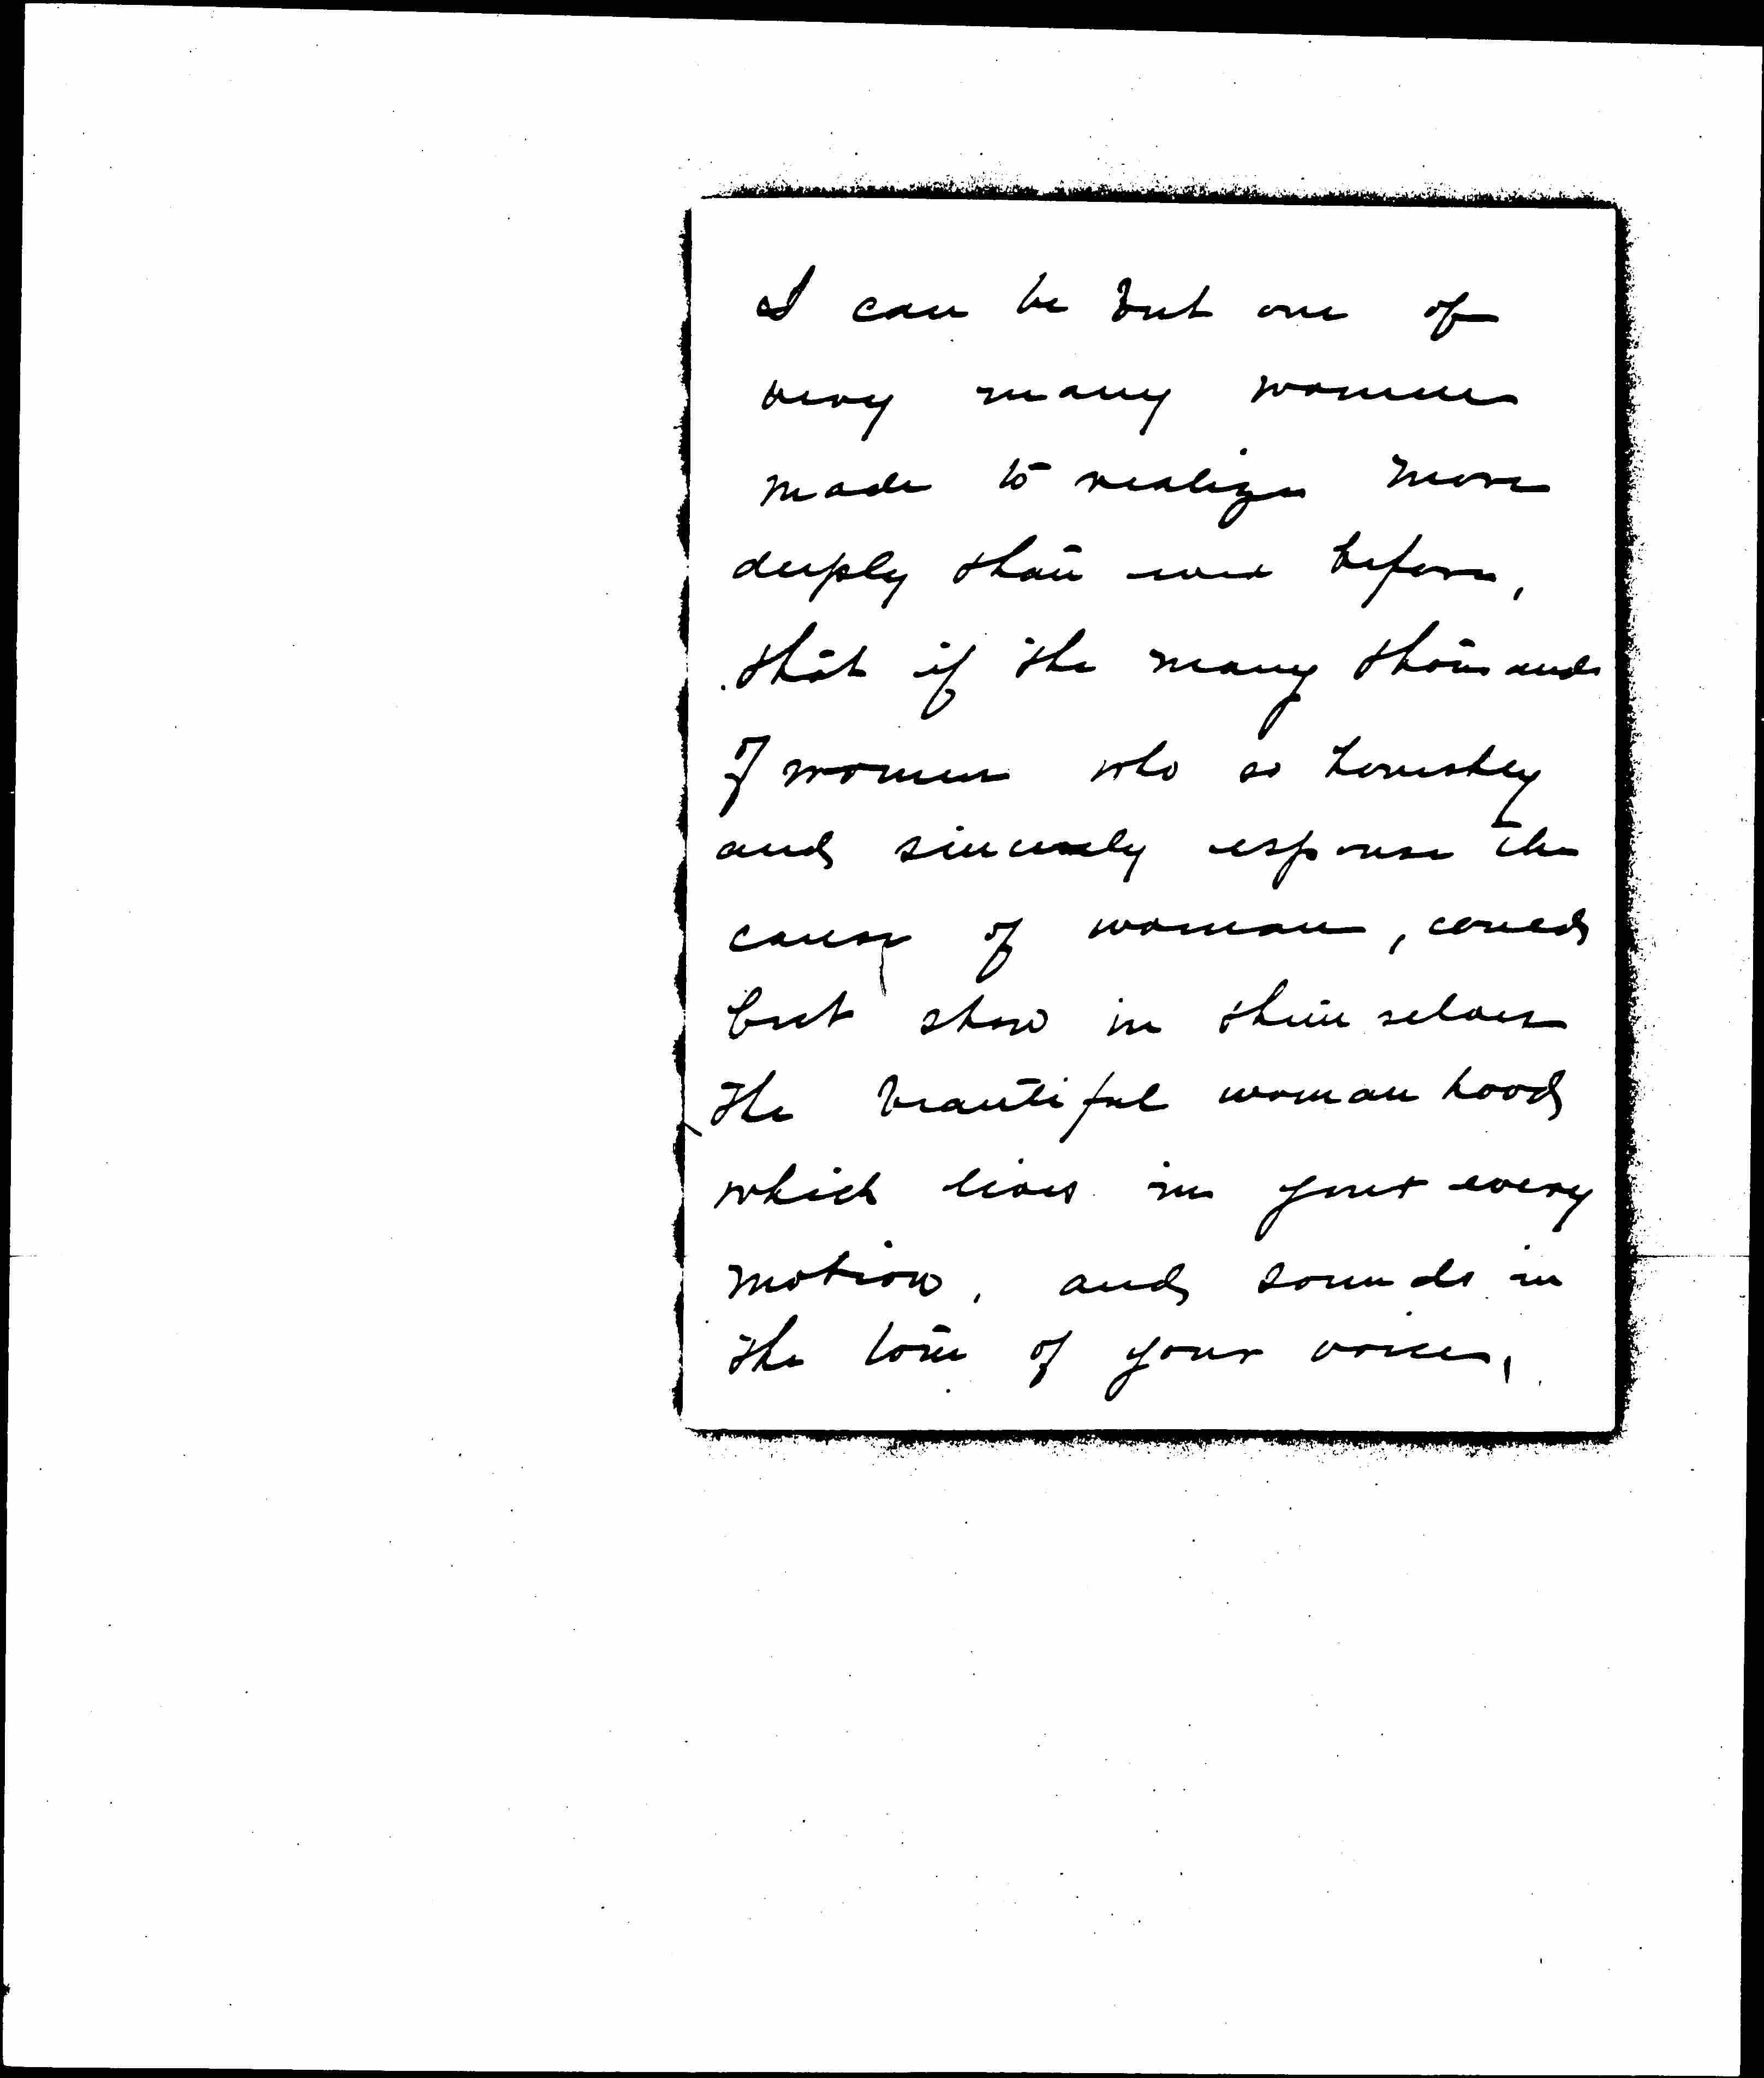 I can be but one of
very many women
made to realize more
deeply than ever before,
that if the many thousands
of women who so honestly
and sincerely espouse the
cause of woman, could
but show in themselves
the beautiful womanhood
which lives in your every
motion, and sounds in
the tone of your voice,